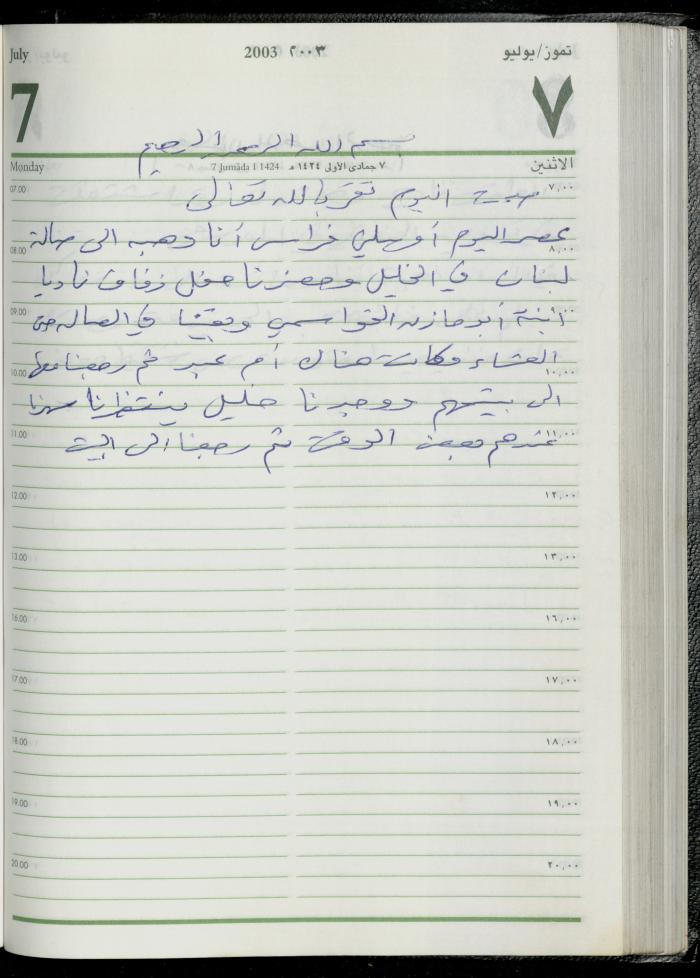 July 2003 ٢٠٠٣ تموز/يوليو
7 ٧
بسم الله الرحمن الرحيم
Monday 7 Jumada I 1424 ٧ جمادى الأولى ١٤٢٤ هـ الاثنين
07.00 ٧,٠٠
صمت اليوم تقربا لله تعالى
عصر اليوم أوصلني فراس أنا وهبه الى صالة
08.00 ٨,٠٠
لبنان في الخليل وحضرنا حفل زفاف ناديا
09.00
ابنة أبو مازن القواسمي وبقينا في الصاله حتى
العشاء وكانت هناك أم عبير ثم رجعنا معها
10.00 ١٠,٠٠
الى بيتهم ووجدنا خليل ينتظرنا سهرنا
11.00 ١١,٠٠
عندهم بعض الوقت ثم رجعنا الى البيت
12.00 ١٢,٠٠
13.00 ١٣,٠٠
16.00 ١٦,٠٠
17.00 ١٧,٠٠
18.00 ١٨,٠٠
19.00 ١٩,٠٠
20.00 ٢٠,٠٠